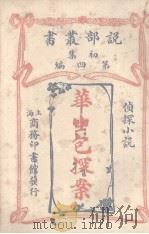 説部叢書
初集
第四編
偵探小說
華生包探案
上海商務印書館發行